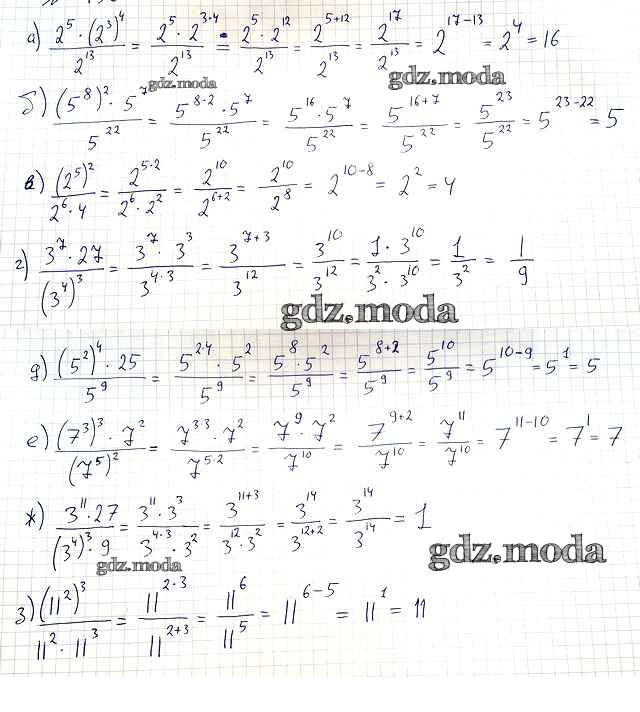 а) (2⁵ · (2³)⁴)/2¹³ = (2⁵ · 2³·⁴)/2¹³ = (2⁵ · 2¹²)/2¹³ = 2⁵⁺¹²/2¹³ = 2¹⁷/2¹³ = 2¹⁷⁻¹³ = 2⁴ = 16
gdz.moda gdz.moda
б) ((5⁸)² · 5⁷)/5²² = (5⁸·² · 5⁷)/5²² = (5¹⁶ · 5⁷)/5²² = 5¹⁶⁺⁷/5²² = 5²³/5²² = 5²³⁻²² = 5
в) (2⁵)²/(2⁶ · 4) = 2⁵·²/(2⁶ · 2²) = 2¹⁰/2⁶⁺² = 2¹⁰/2⁸ = 2¹⁰⁻⁸ = 2² = 4
г) (3⁷ · 27)/(3⁴)³ = (3⁷ · 3³)/3⁴·³ = 3⁷⁺³/3¹² = 3¹⁰/3¹² = (1 · 3¹⁰)/(3² · 3¹⁰) = 1/3² = 1/9
gdz.moda
д) ((5²)⁴ · 25)/5⁹ = (5²·⁴ · 5²)/5⁹ = (5⁸ · 5²)/5⁹ = 5⁸⁺²/5⁹ = 5¹⁰/5⁹ = 5¹⁰⁻⁹ = 5¹ = 5
е) ((7³)³ · 7²)/(7⁵)² = (7³·³ · 7²)/7⁵·² = (7⁹ · 7²)/7¹⁰ = 7⁹⁺²/7¹⁰ = 7¹¹/7¹⁰ = 7¹¹⁻¹⁰ = 7¹ = 7
ж) (3¹¹ · 27)/((3⁴)³ · 9) = (3¹¹ · 3³)/(3⁴·³ · 3²) = 3¹¹⁺³/(3¹² · 3²) = 3¹⁴/3¹²⁺² = 3¹⁴/3¹⁴ = 1
gdz.moda gdz.moda
з) (11²)³/(11² · 11³) = 11²·³/11²⁺³ = 11⁶/11⁵ = 11⁶⁻⁵ = 11¹ = 11